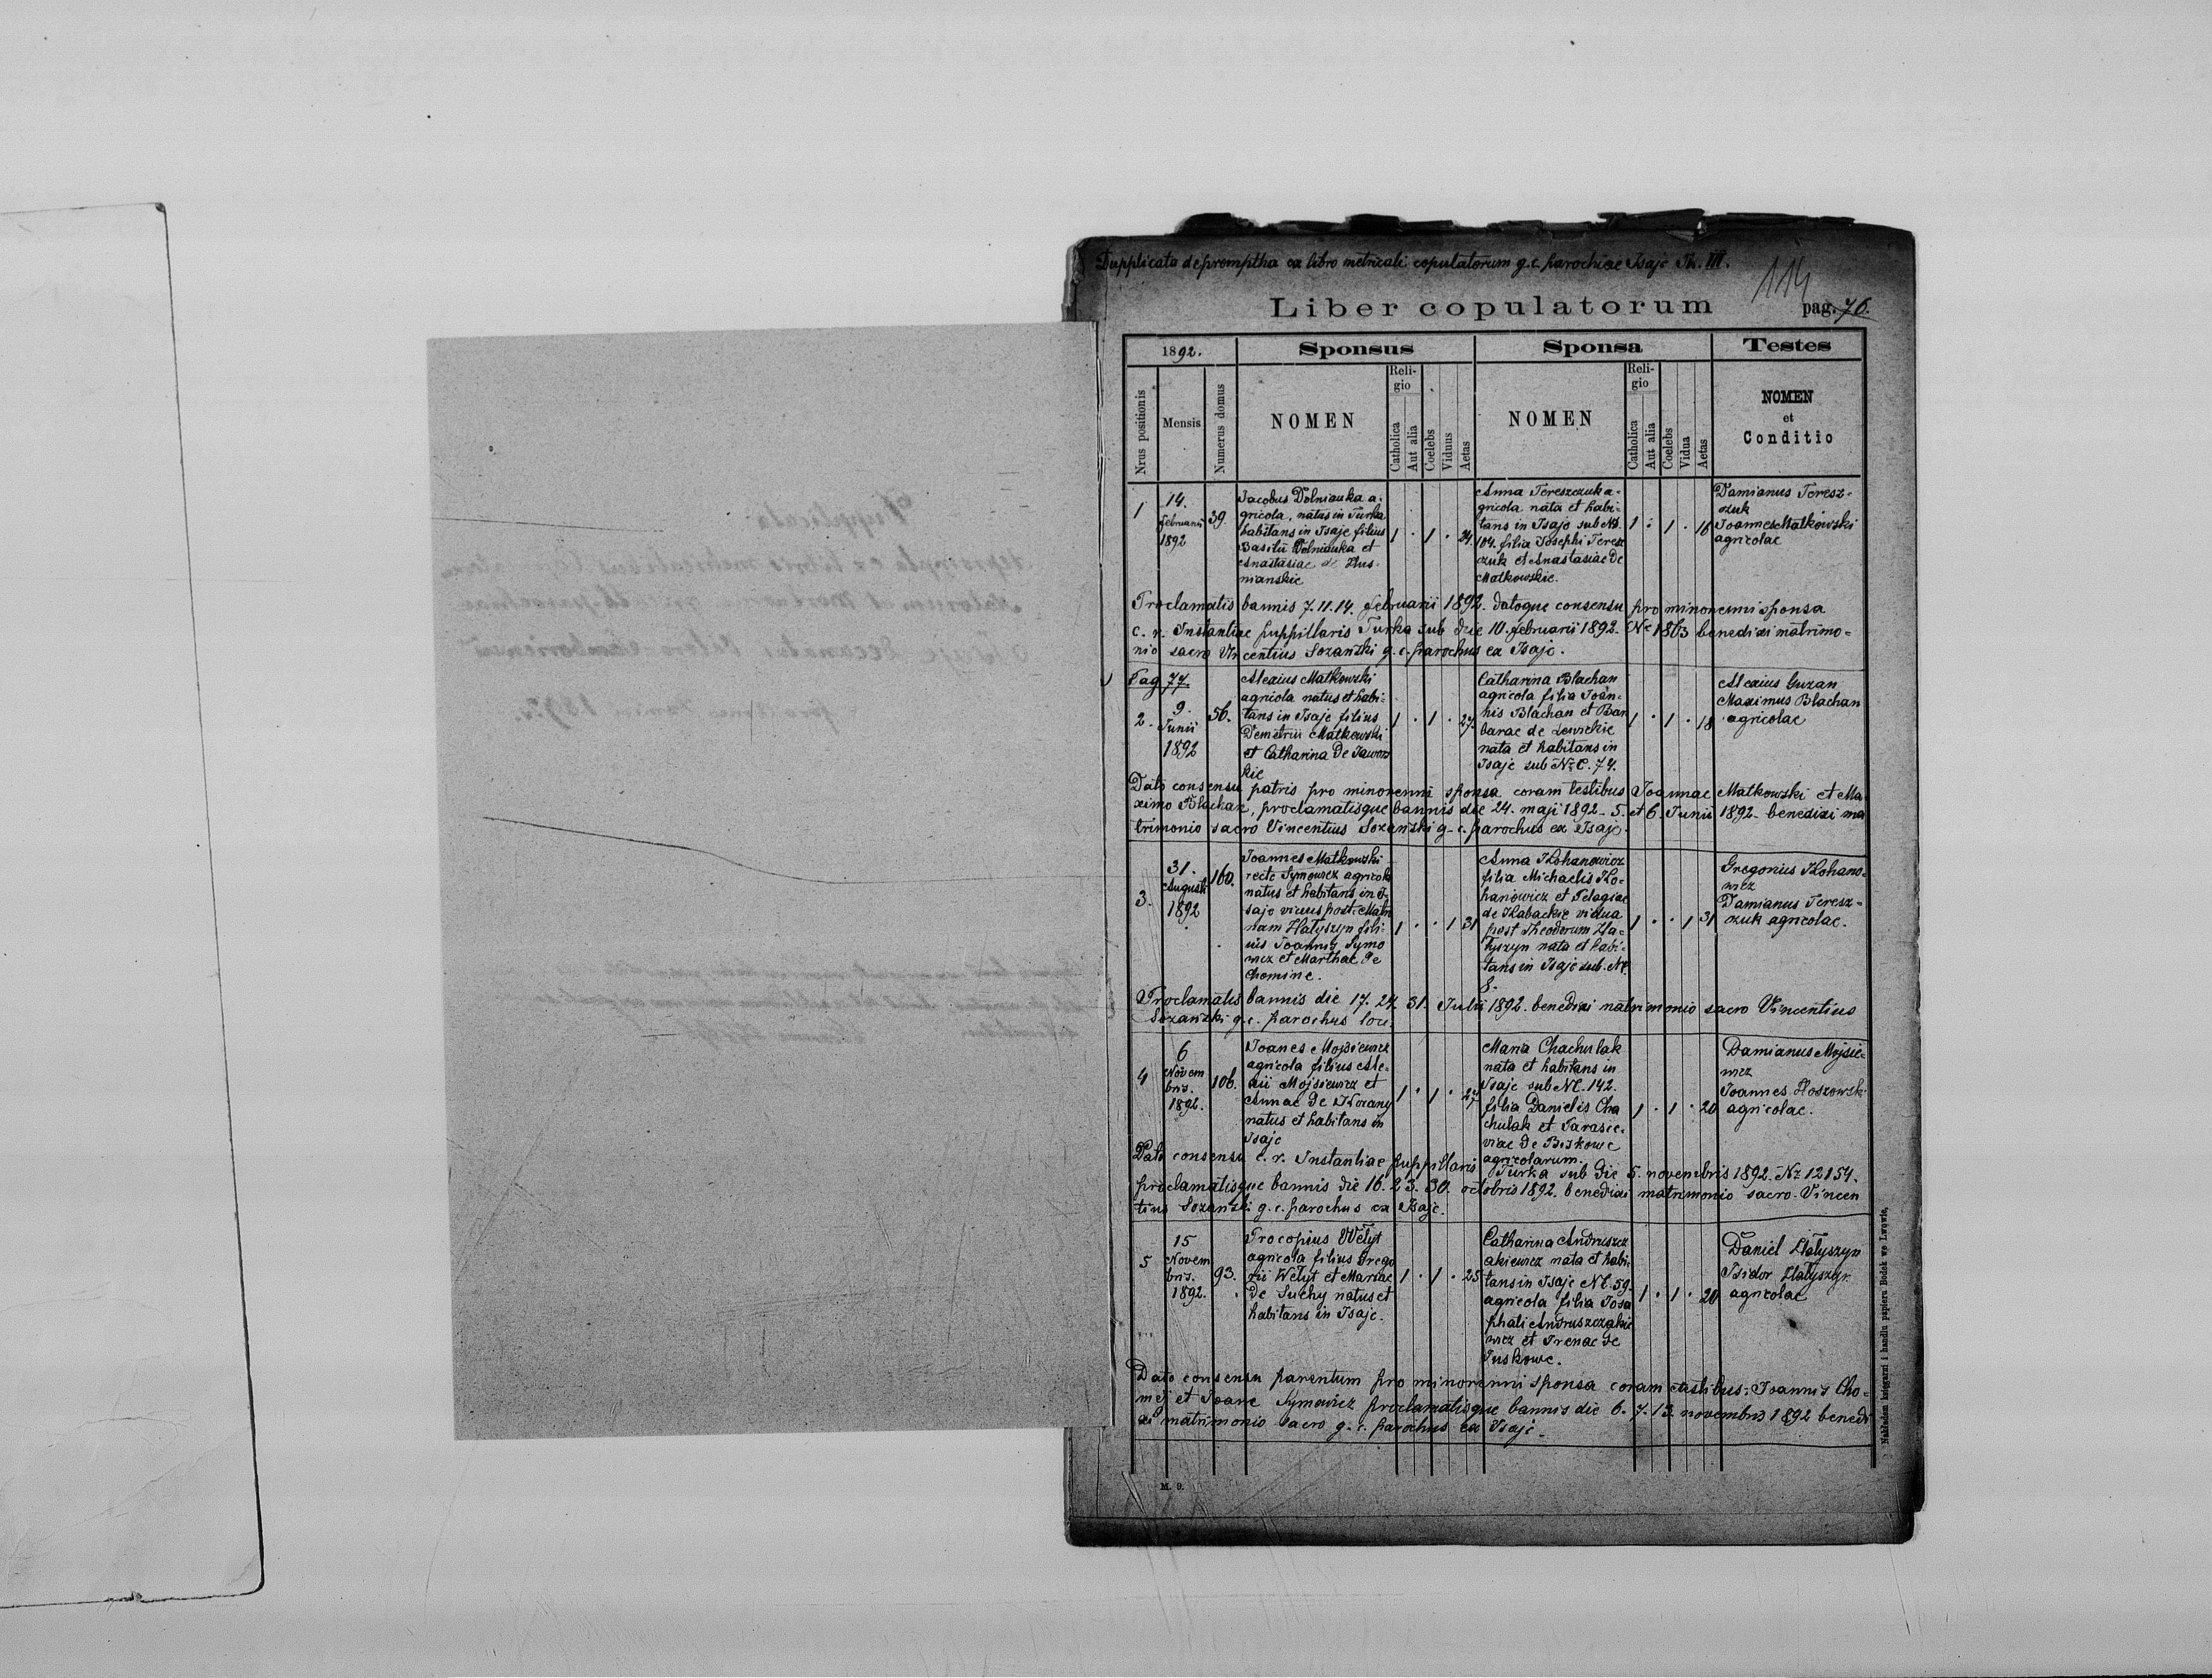 Dupplicata depromptha ex libro metricali copulatorum g.c. parochiae Isaje Th. III.
114
Liber copulatorum
pag. 76.
1892.
Sponsus
Sponsa
Testes
Nrus positionis
Mensis
Numerus domus
NOMEN
Religio
Catholica
Aut alia
Coelebs
Viduus
Aetas
NOMEN
Religio
Catholica
Aut alia
Coelebs
Vidua
Aetas
NOMEN
et
Conditio
1
14.
februarii
1892
39.
Jacobus Dolniauka a-
gricola, natus in Turka
habitans in Isaje filius
Basilii Dolniauka et
Anastasiae de Hus-
nianskie
1 . 1 . 24.
Anna Tereszczuk a-
gricola nata et habi-
tans in Isaje sub No.
104. filia Josephi Teresz
czuk et Anastasiae de
Matkowskie.
1 . 1 . 16
Damianus Teresz-
czuk
Joannes Matkowski
agricolae
Proclamatis bannis 7. 11. 14. februarii 1892. datoque consensu pro minorenni sponsa
c. r. Instantiae puppillaris Turka sub die 10. februarii 1892. No 1863 benedixi matrimo-
nio sacro Vincentius Sozański g. c. parochus ex Isaje.
Pag 77
2.
9.
Junii
1892
56.
Alexius Matkowski
agricola natus et habi-
tans in Isaje filius
Demetrii Matkowski
et Catharina de Jawor
skie
1 . 1 . 27.
Catharina Blachan
agricola filia Joan-
nis Blachan et Bar
barae de
nata et habitans in
Isaje sub Nr C. 74.
1 . 1 . 18
Alexius Guzan
Maximus Blachan
agricolae
Dato consensu patris pro minorenni sponsa coram testibus Joannae Matkowski et Ma
ximo Blachan, proclamatisque bannis die 24. maji 1892. 5. et 6. Junii 1892. benedixi ma
trimonio sacro Vincentius Sozański g. c. parochus ex Isaje.
3.
31.
Augusti
1892
160.
Joannes Matkowski
recte Symowicz agricola
natus et habitans in I-
saje viduus post Matro
nam Hałyszyn fili-
us Joannis Symo
wicz et Marthae de
Chomine.
1 . . 1 31
Anna Kohanowicz
filia Michaelis Ko-
hanowicz et Pelagiae
de Kabackie vidua
post Theodorum Ha-
łyszyn nata et habi-
tans in Isaje sub. Nr.
8.
1 . . 1 31
Gregorius Kohano-
wicz
Damianus Teresz-
czuk agricolae.
Proclamatis bannis die 17. 24. 31. Julii 1892. benedixi matrimonio sacro Vincentius
Sozański g. c. parochus loci.
4
6
Novem
bris.
1892.
106.
Joanes Mojsiewicz
agricola filius Ale-
xii Mojsiewicz et
Annae de Korany
natus et habitans in
Isaje
1 . 1 . 27
Maria Chachulak
nata et habitans in
Isaje sub NC. 142.
filia Danielis Cha
chulak et Parasce-
viae de Biskowe
agricolarum.
1 . 1 . 20
Damianus Mojsie-
wicz
Joannes Hoszowski
agricolae.
Dato consensu c. r. Instantiae puppillaris Turka sub die 5. novembris 1892. Nr 12154.
proclamatisque bannis die 16. 23. 30. octobris 1892. benedixi matrimonio sacro. Vincen
tius Sozański g. c. parochus ex Isaje.
5
15
Novem
bris.
1892.
93.
Procopius Wełyt
agricola filius Grego
rii Wełyt et Mariae
de Suchy natus et
habitans in Isaje.
1 . 1 . 25
Catharina Andruszcz
akiewicz nata et habi-
tans in Isaje NC. 59.
agricola filia Josa
phati Andruszczakie
wicz et Irenae de
Juskowe.
1 . 1 . 20
Daniel Hałyszyn
Isidor Hałyszyn
agricolae
Dato consensu parentum pro minorenni sponsa coram testibus: Joannis Cho-
mej et Joane Symowicz proclamatisque bannis die 6. 7. 13. novembris 1892 benedi
xi matrimonio sacro g. c. parochus ex Isaje.
M. 9.
Nakładem księgarni i handlu papieru Bodek we Lwowie,